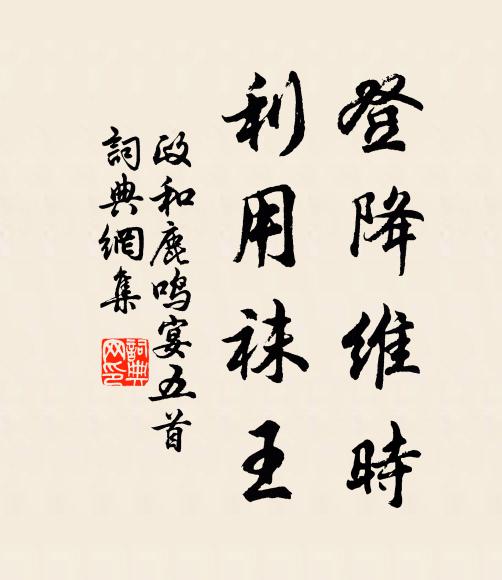 登降維時
利用袜王
政和鹿鳴宴五首
詞典網集
詞典網印